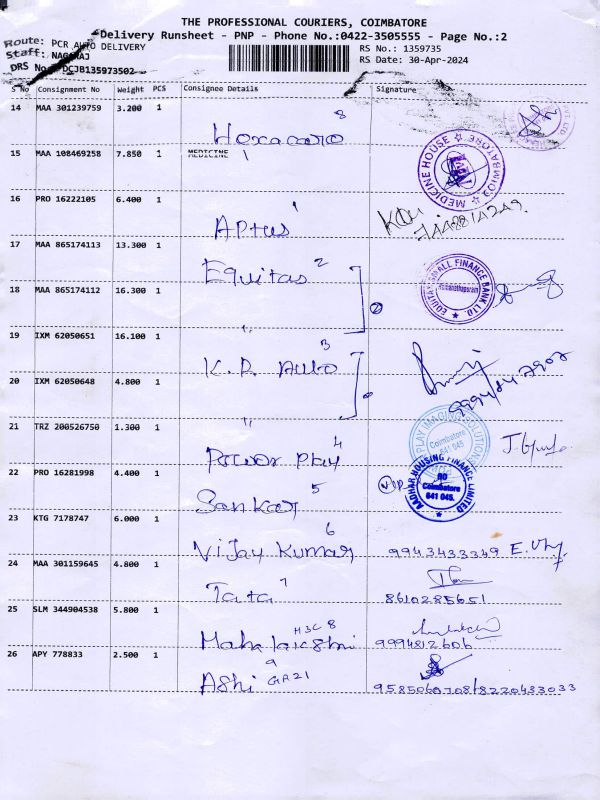 THE PROFESSIONAL COURIERS, COIMBATORE
Delivery Runsheet - PNP - Phone No.:0422-3505555 - Page No.:2
Route: PCR AUTO DELIVERY
RS No.: 1359735
Staff: NAGARAJ
RS Date: 30-Apr-2024
DRS No.: DCJB135973502
S No Consignment No Weight PCS Consignee Details Signature
14 MAA 301239759 3.200 1
8
15 MAA 108469258 7.850 1 MEDICINE 1
MEDICINE HOUSE COIMBATORE
16 PRO 16222105 6.400 1 Aptus 1
17 MAA 865174113 13.300 1 Equitas 2
EQUITAS SMALL FINANCE BANK LTD.
Ramanathapuram
18 MAA 865174112 16.300 1 ,, 2
19 IXM 62050651 16.100 1 K.P. Auto 3
20 IXM 62050648 4.800 1 ,,
21 TRZ 200526750 1.300 1 Power Play 4
PLAY IMAGING SOLUTIONS
Coimbatore
641 045
22 PRO 16281998 4.400 1 Sankar 5
AADHAR HOUSING FINANCE LIMITED
RO
Coimbatore
641 045.
23 KTG 7178747 6.000 1 Vijay Kumar 6 9943433349
24 MAA 301159645 4.800 1 Tata 7 8610285651
25 SLM 344904538 5.800 1 Mahalakshmi H3C 8 9994812606
26 APY 778833 2.500 1 Ashi 9